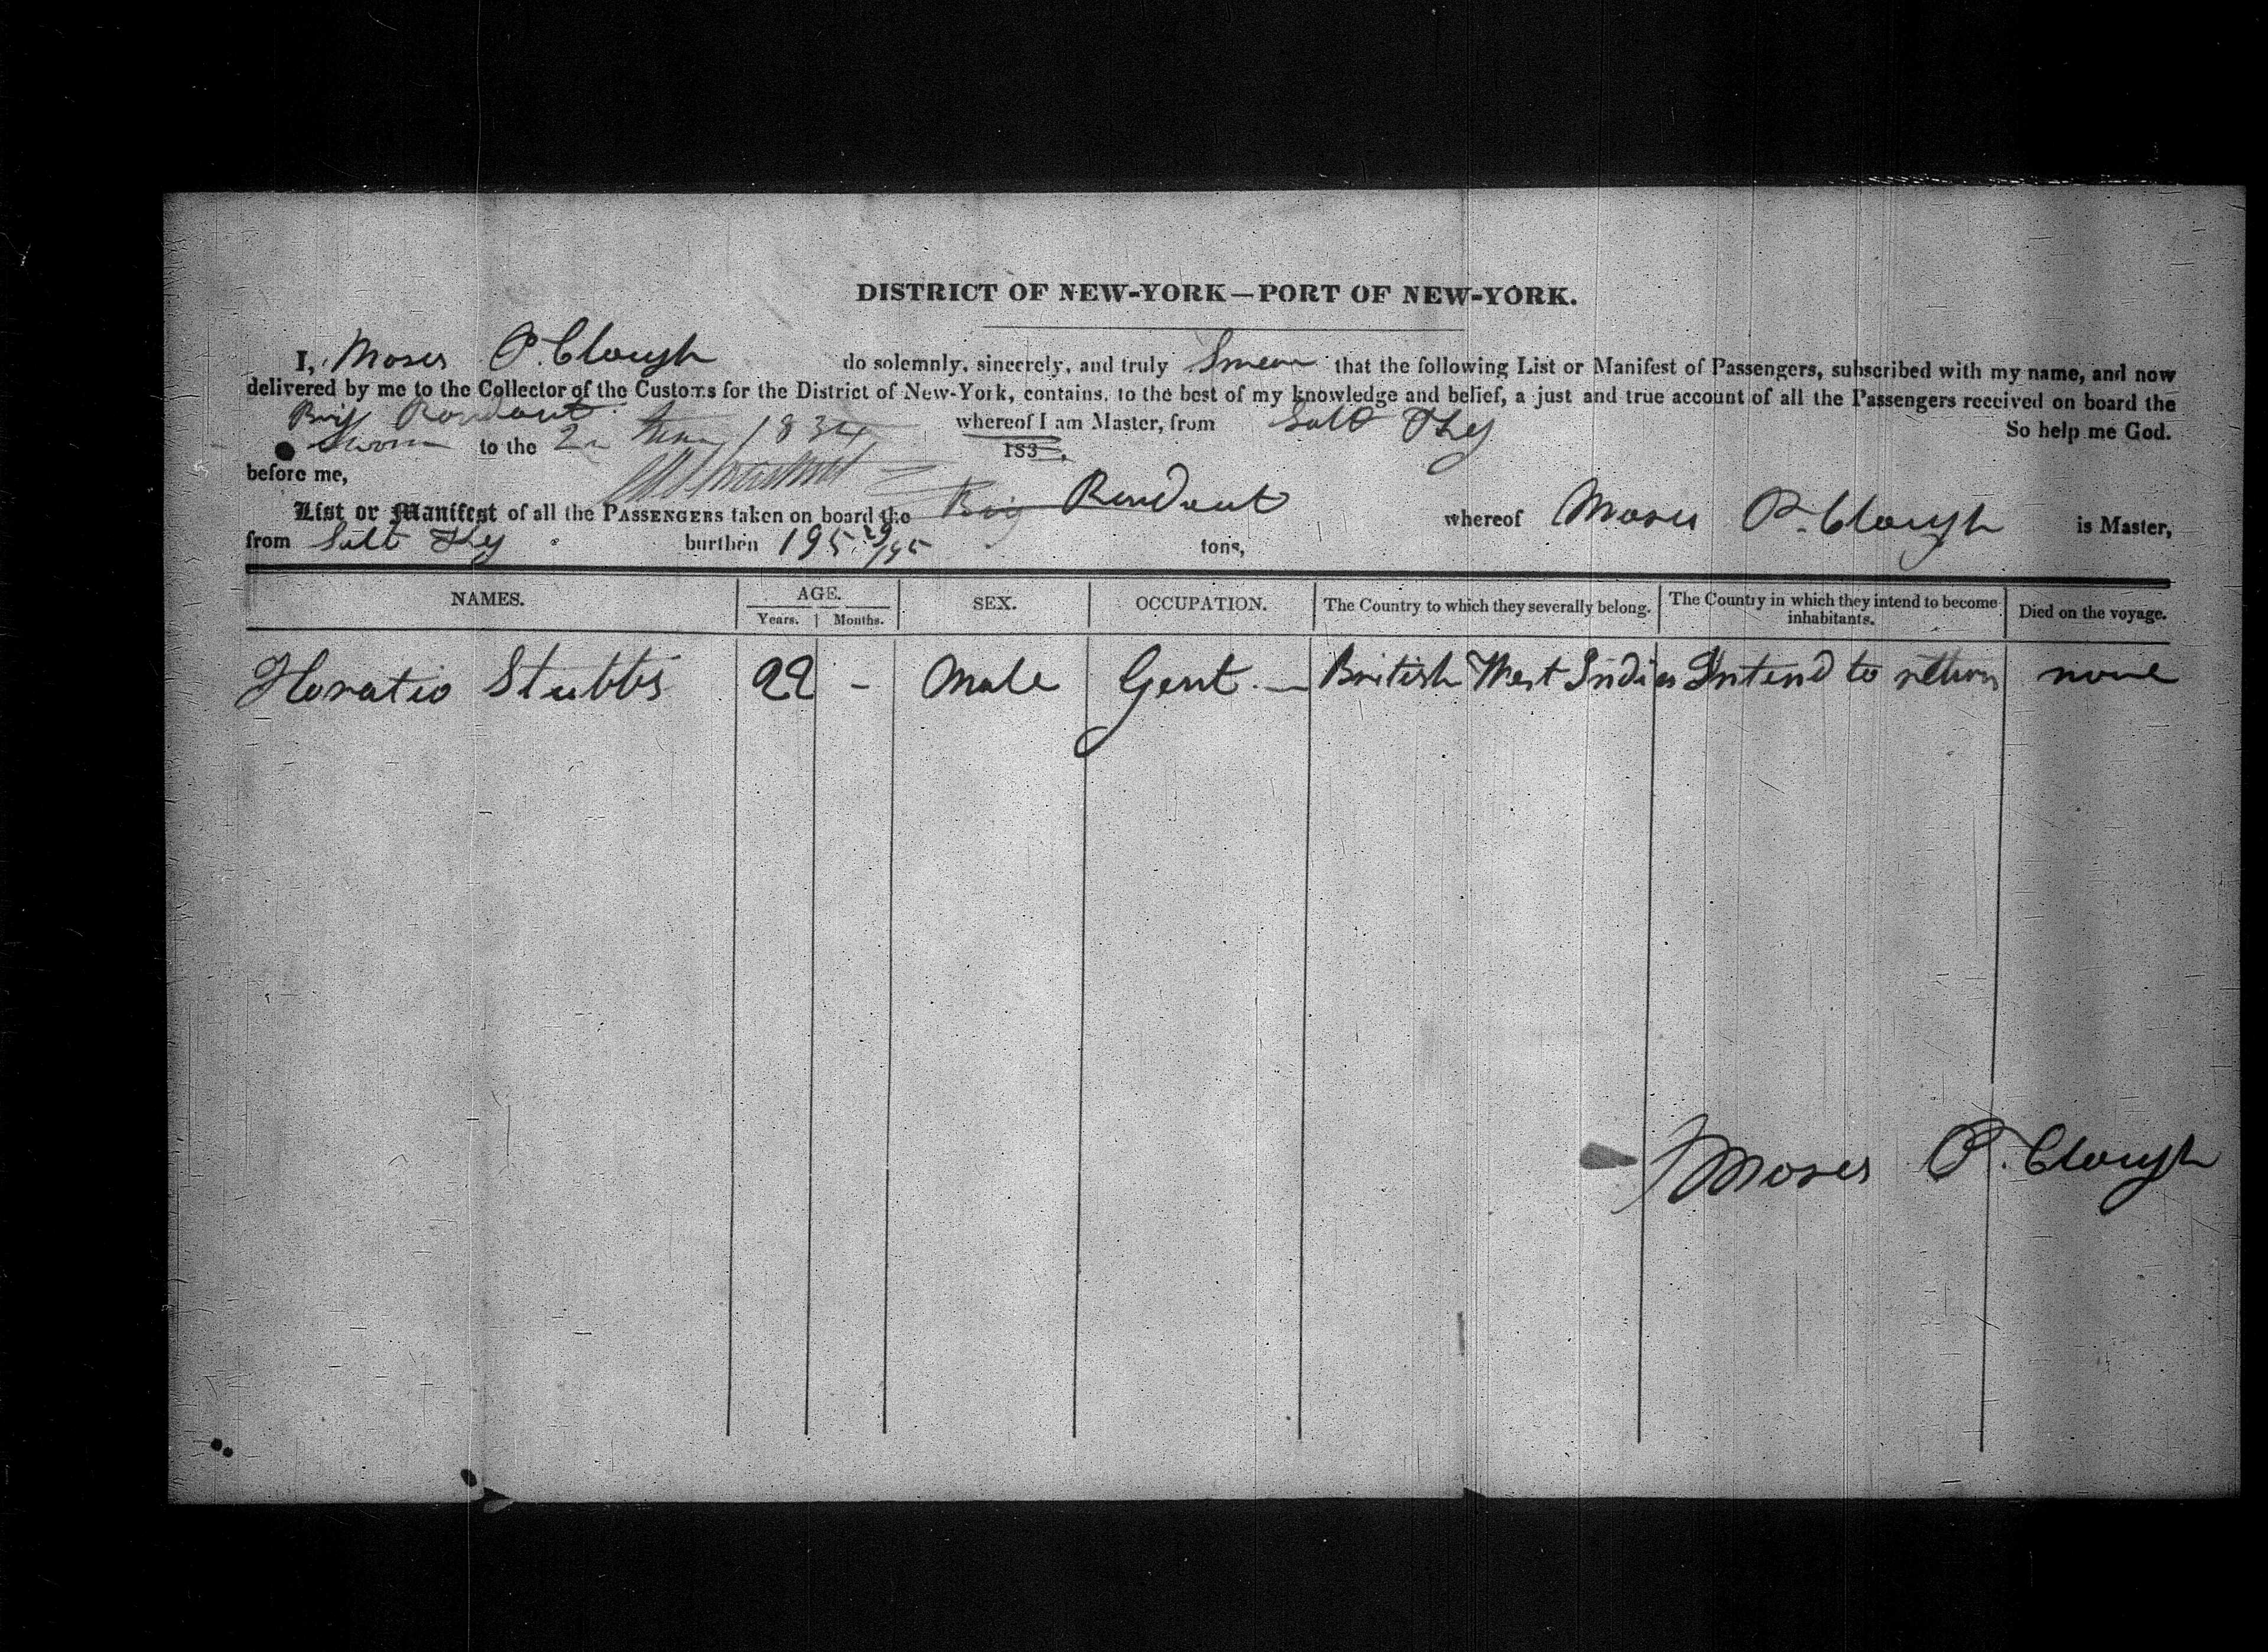 DISTRICT OF NEW-YORK—PORT OF NEW-YORK.
I, Moses P. Clough do solemnly, sincerely, and truly Swear that the following List or Manifest of Passengers, subscribed with my name, and now
delivered by me to the Collector of the Customs for the District of New-York, contains, to the best of my knowledge and belief, a just and true account of all the Passengers received on board the
Brig Rondout whereof I am Master, from Salt Key So help me God.
Sworn to the 1834 183
before me,
List or Manifest of all the PASSENGERS taken on board the Brig Rondout whereof Moses P. Clough is Master,
from Salt Key burthen 195 29/95 tons,
NAMES. AGE. Years. Months. SEX. OCCUPATION. The Country to which they severally belong. The Country in which they intend to become inhabitants. Died on the voyage.
Horatio Stubbs 22 - Male Gent. — British West Indies Intend to return none
Moses P. Clough